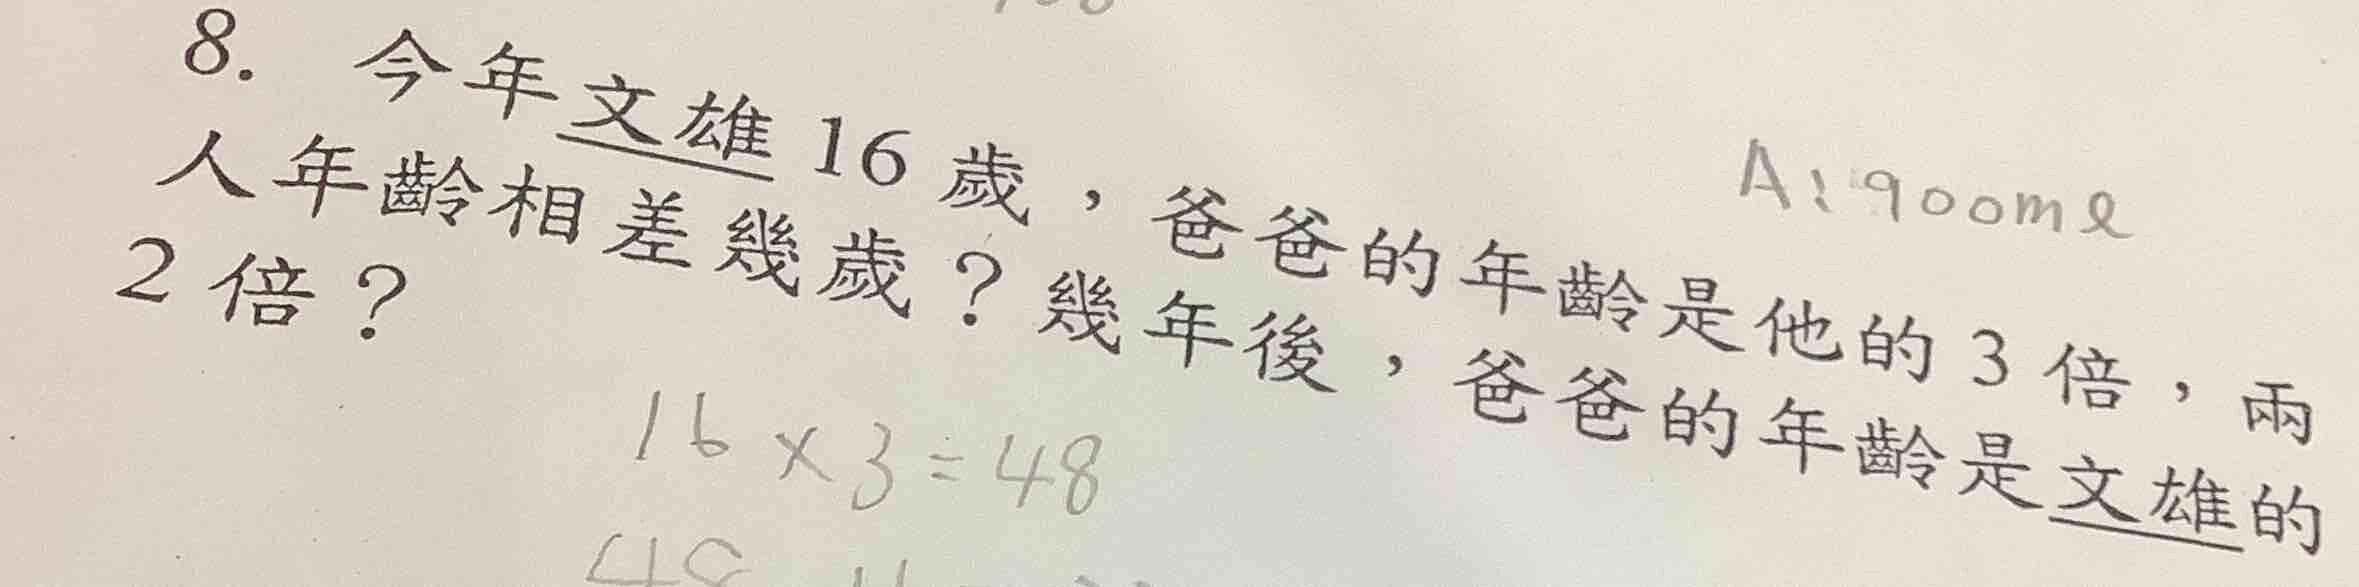 8. 今年文雄 16 歲，爸爸的年齡是他的 3 倍，兩
人年齡相差幾歲？幾年後，爸爸的年齡是文雄的
2 倍？
A：900ml
16×3=48